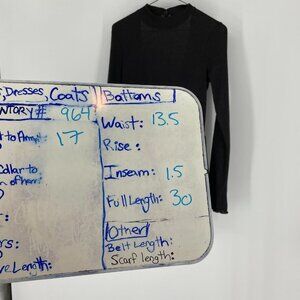 , Dresses, Coats
NTORY# 964
t to Armpit: 17
Collar to
Length:
Bottoms
Waist: 13.5
Rise:
Inseam: 1.5
Full Length: 30
Other
Belt Length:
Scarf Length: